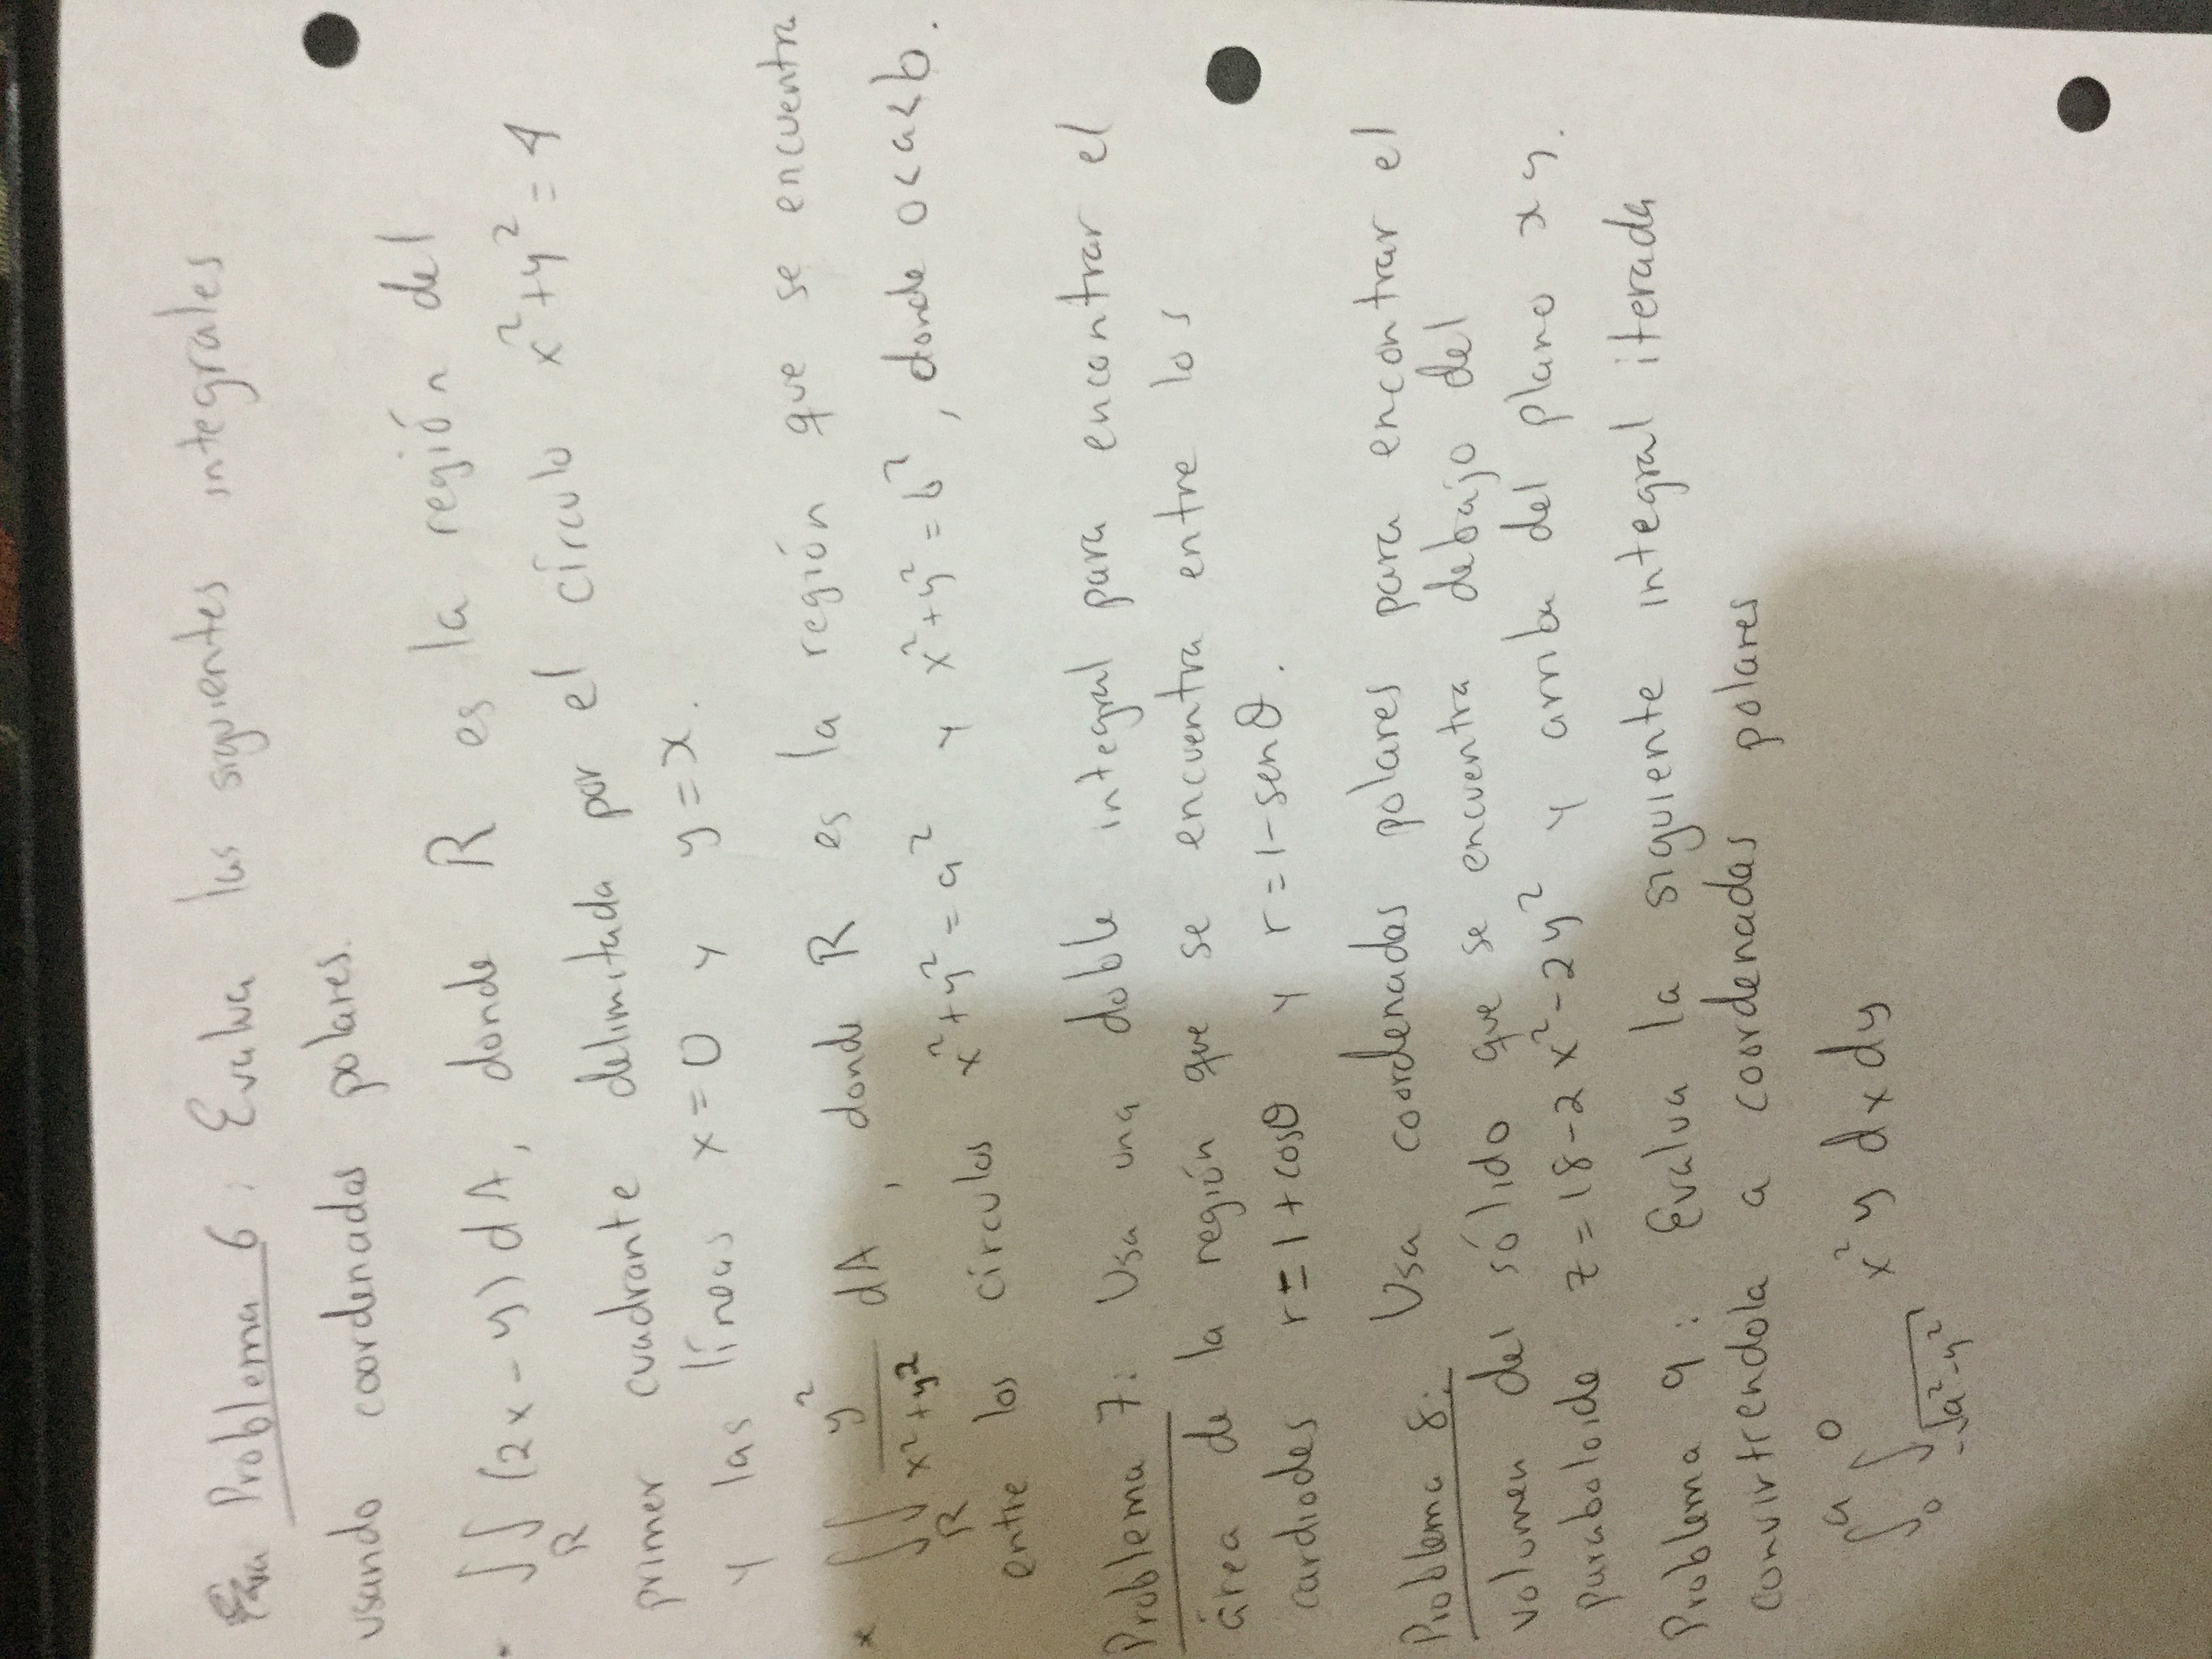 Problema 6: Evalua las siguientes integrales
usando coordenadas polares.
• ∫∫_R (2x-y) dA, donde R es la región del
primer cuadrante delimitada por el círculo x²+y²=4
y las líneas x=0 y y=x.
* ∫∫_R y²/(x²+y²) dA, donde R es la región que se encuentra
entre los círculos x²+y²=a² y x²+y²=b², donde 0<a<b.
Problema 7: Usa una doble integral para encontrar el
área de la región que se encuentra entre los
cardiodes r=1+cosθ y r=1-senθ.
Problema 8: Usa coordenadas polares para encontrar el
volumen del sólido que se encuentra debajo del
paraboloide z=18-2x²-2y² y arriba del plano xy.
Problema 9: Evalua la siguiente integral iterada
convirtrendola a coordenadas polares
∫_0^a ∫_{-√(a²-y²)}^0 x²y dx dy